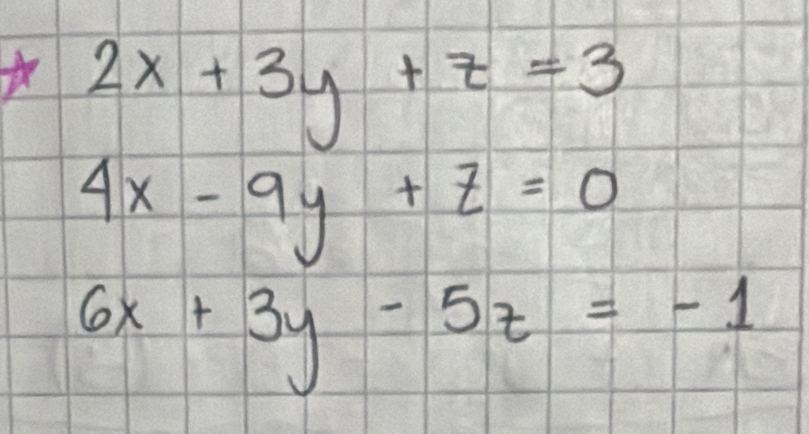 2x + 3y + z = 3
4x - 9y + z = 0
6x + 3y - 5z = -1